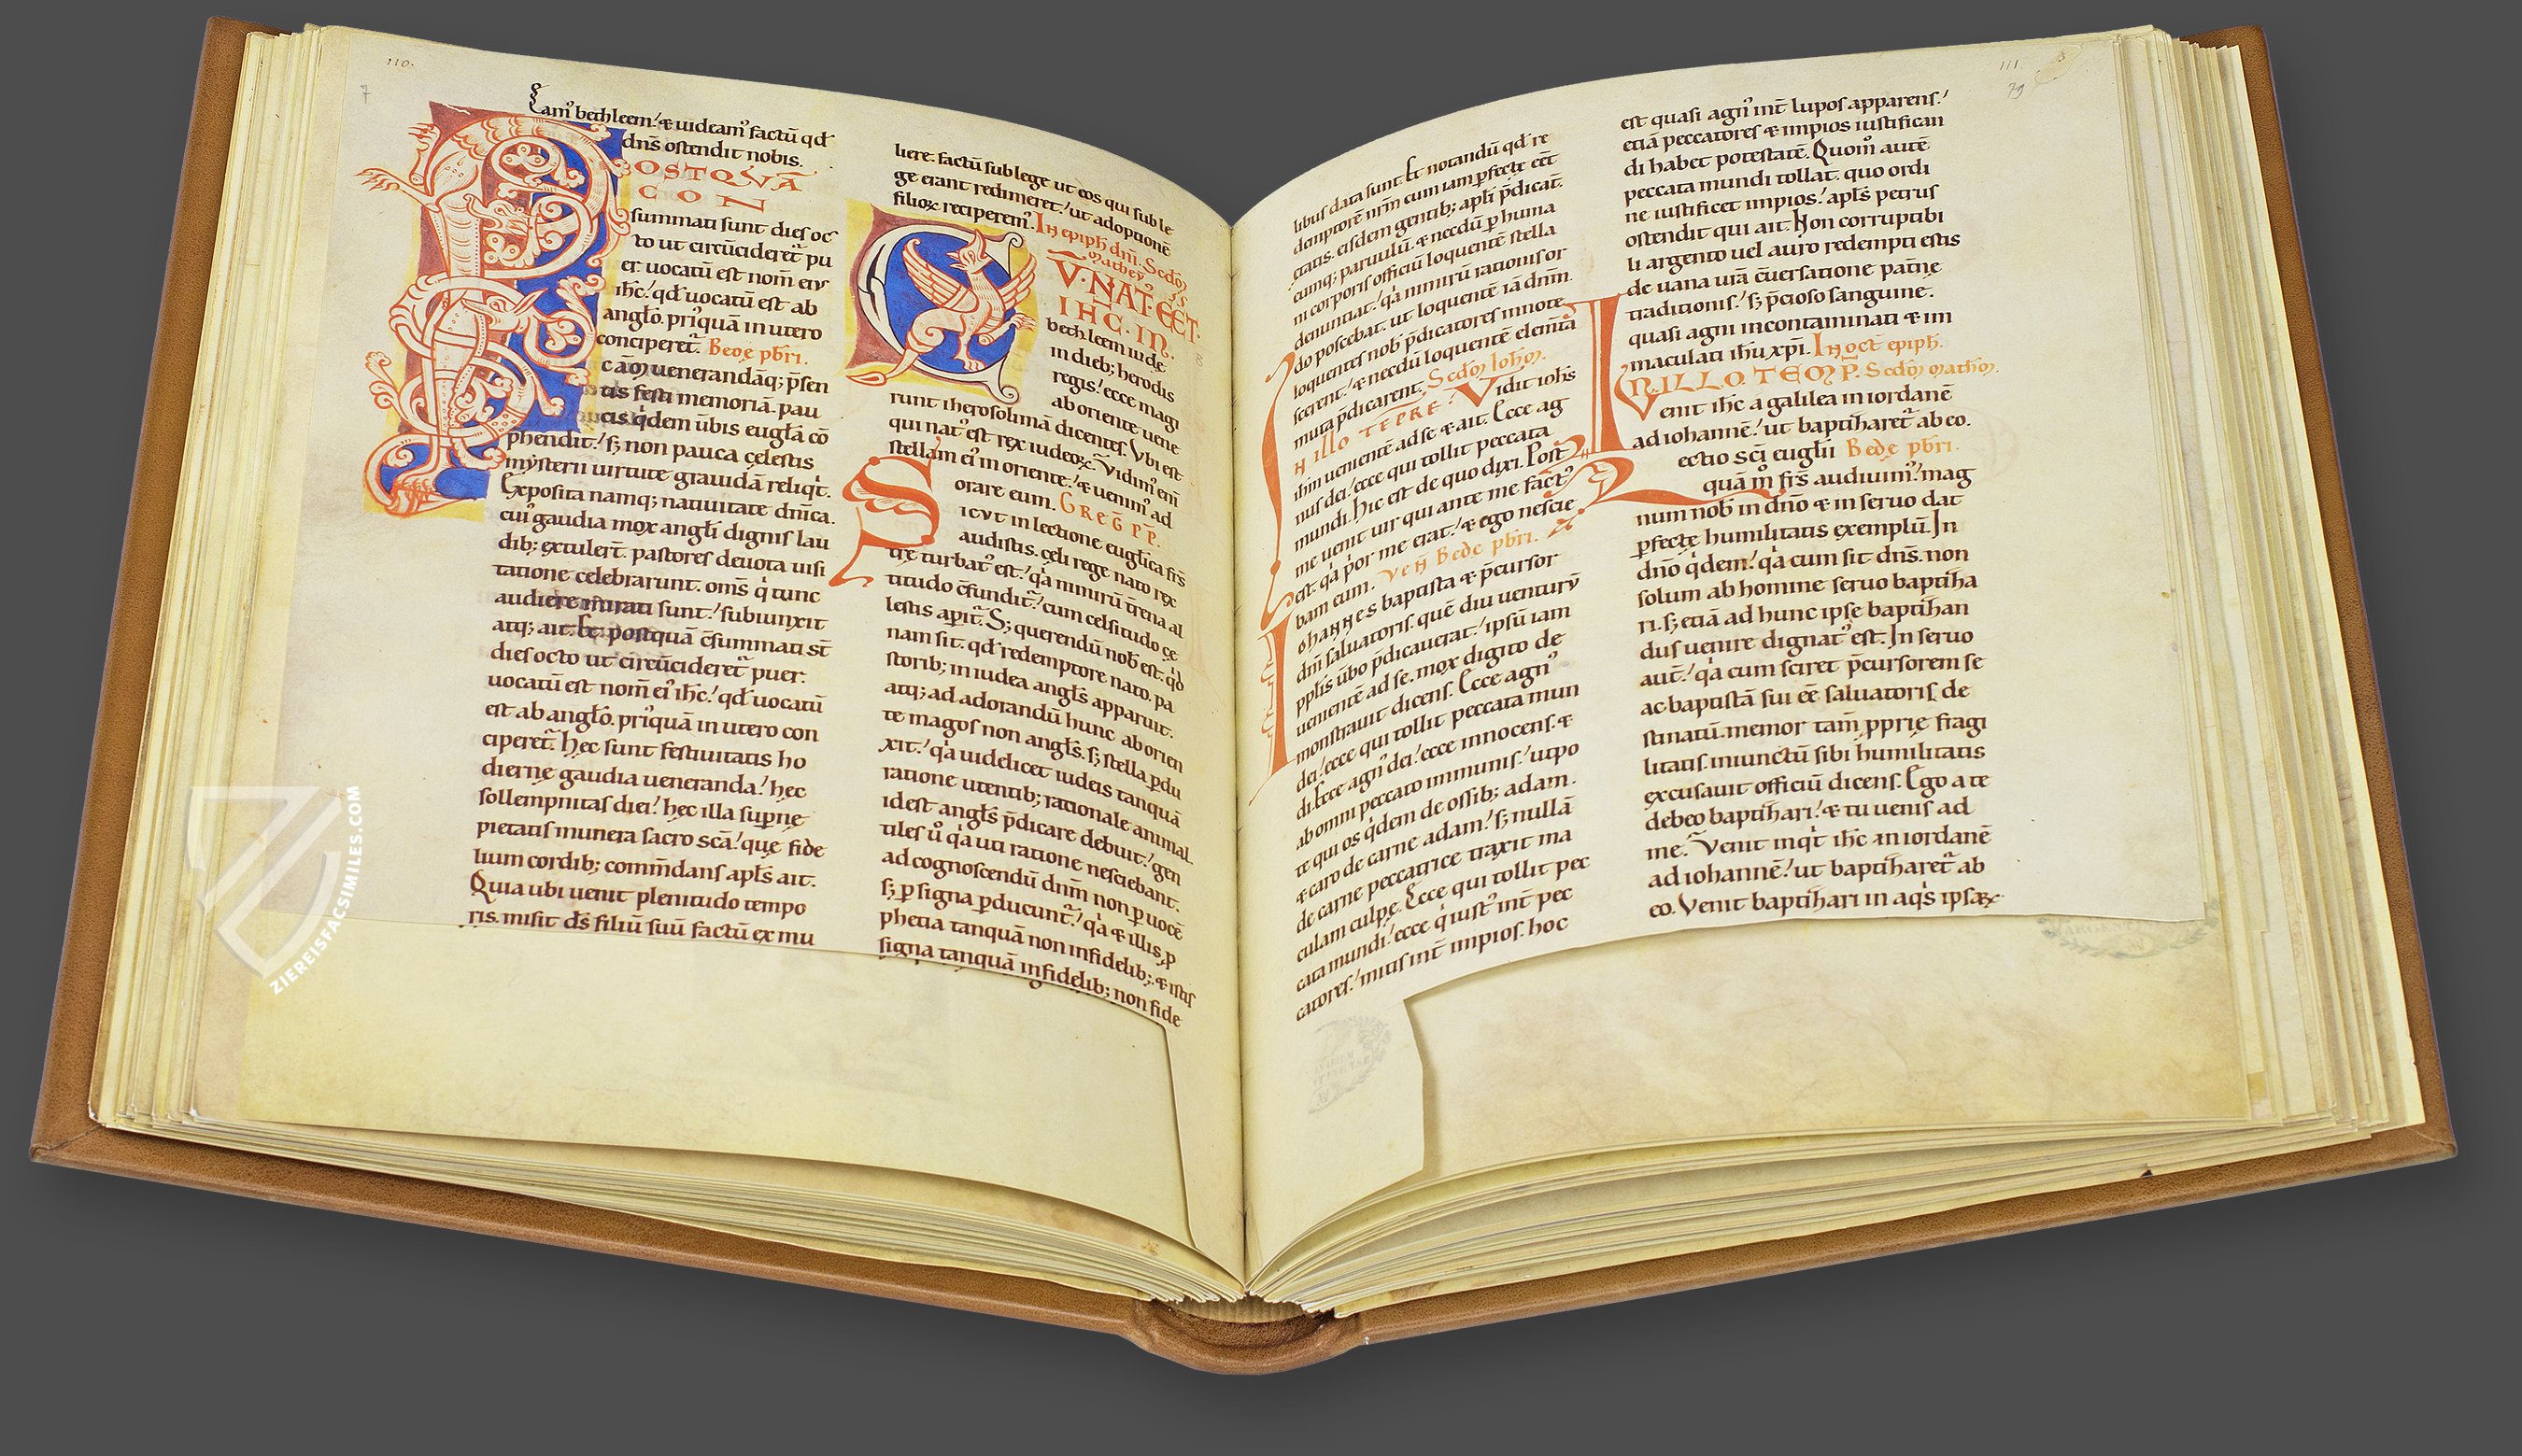 110.
am᷒ bethleem. & uideam᷒ factū qď
dn̄s ostendit nobis.
POSTQVĀ
CON
summati sunt dies oc
to ut circūcideret᷑ pu
er. uocatū est nom̄ ei᷒
ihc. qď uocatū est ab
angl̄o. pri᷒quā in utero
conciperet᷑. Bede pbr̄i.
uenerandāq; p̄sen
tis festi memoriā. pau
cis q'dem ūbis eugl̄ā cō
phendit. s; non pauca cęlestis
mysterii uirtute grauidā reliq't.
Exposita namq; natiuitate dn̄ica.
cui᷒ gaudia mox angl̄i dignis lau
dib; extuler̄t. pastores deuota uisi
tatione celebrarunt. om̄s q' tunc
audiere mirati sunt. subiunxit
atq; ait. Et postquā c̄summati sт̄
dies octo ut circūcideret᷑ puer.
uocatū est nom̄ ei᷒ ihc. qď uocatū
est ab angl̄o. pri᷒quā in utero con
ciperet᷑. Hec sunt festiuitatis ho
diernę gaudia ueneranda. hęc
sollempnitas diei. hęc illa supnę
pietatis munera sacro scā. quę fide
lium cordib; com̄dans apl̄s ait.
Quia ubi uenit plenitudo tempo
ris. misit d̄s filiū suū factū ex mu
liere. factū sub lege ut eos qui sub le
ge erant redimeret. ut adoptionē
filioꝝ reciperem᷒. In epiph dn̄i. Scdm
mathev
CV̄. NAT᷒ EĒT.
IHC. IN.
bethleem iude
in dieb; herodis
regis. ecce magi
ab oriente uene
runt iherosolimā dicentes. Vbi est
qui nat᷒ est rex iudeoꝝ. Vidim᷒ eni
stellam ei᷒ in oriente. & uenim᷒ ad
orare eum. GREG PP̄.
SICVT in lectione euglica fr̄s
audistis. cęli rege nato rex
trę turbat᷒ est. q'a nimirū t̄rena al
titudo c̄fundit᷑. cum celsitudo cę
lestis aperit᷑. S; querendū nob̄ est. q'd
nam sit. qď redemptore nato. pa
storib; in iudea angl̄s apparuit.
atq; ad adorandū hunc ab orien
te magos non angl̄s. s; stella pdu
xit. q'a uidelicet iudeis tanquā
ratione utentib; rationale animal.
idest angl̄s p̄dicare debuit. gen
tiles ů q'a uti ratione nesciebant.
ad cognoscendū dnm̄ non p uocē
s; p signa pducunt᷑. q'a & illis p
phetia tanquā non infidelib; & istis
signa tanquā infidelib; non fide
111
79
libus data sunt. Et notandū qď re
demptorē nrm̄ cum iam pfectę eēt
ętatis. eisdem gentib; apl̄i p̄dicāt.
eumq; paruulū. & necdū p huma
ni corporis officiū loquentē stella
denuntiat. q'a nimirū rationis or
do poscebat. ut loquentē iā dnm̄.
loquentes nob̄ p̄dicatores innote
scerent. & necdū loquentē elem̄ta
muta p̄dicarent. Scdm Ioh̄m.
IN ILLO TĒPRE. Vidit ioh̄s
ihm uenientē ad se & ait. Ecce ag
nus dei. ecce qui tollit peccata
mundi. Hic est de quo dixi. Post
me uenit uir qui ante me fact᷒
est. q'a p'or me erat. & ego nescie
bam eum. Ven Bede pbr̄i.
Iohannes baptista & p̄cursor
dn̄i saluatoris. quē diu venturū
pplis ūbo p̄dicauerat. ipsū iam
uenientē ad se. mox digito de
monstrauit dicens. Ecce agn᷒
dei. ecce qui tollit peccata mun
di. Ecce agn᷒ dei. ecce innocens. &
ab omni peccato immunis. utpo
te qui os q'dem de ossib; adam.
& caro de carne adam. s; nullā
de carne peccatrice traxit ma
culam culpę. Ecce qui tollit pec
cata mundi. ecce q' iust᷒ int̄ pec
catores. mitis int̄ impios. hoc
est quasi agn᷒ int̄ lupos apparens.
etiā peccatores & impios iustifican
di habet potestatē. Quom̄ autē
peccata mundi tollat. quo ordi
ne iustificet impios. apl̄s petrus
ostendit qui ait. Non corruptibi
li argento uel auro redempti estis
de uana urā c̄uersatione pat̄nę
traditionis. s; p̄cioso sanguine.
quasi agni incontaminati & im
maculati ihu xpi. In oct epiph.
IN.ILLO.TEMP̄. Scdm math̄m.
Venit ihc a galilea in iordanē
ad iohannē. ut baptiharet᷑ ab eo.
Lectio sc̄i euglii Bede pbr̄i.
quā m̊ fr̄s audiuim᷒. mag
num nob̄ in dn̄o & in seruo dat
pfectę humilitatis exemplū. In
dn̄o q'dem. q'a cum sit dn̄s. non
solum ab homine seruo baptiha
ri. s; etiā ad hunc ipse baptihan
dus uenire dignat᷒ est. In seruo
aut̄. q'a cum sciret p̄cursorem se
ac baptistā sui eē saluatoris. de
stinatū. memor tam̄ pprię fragi
litatis. iniunctū sibi humilitatis
excusauit officiū dicens. Ego a te
debeo baptihari. & tu uenis ad
me. Venit inq't ihc in iordanē
ad iohannē. ut baptiharet᷑ ab
eo. Venit baptihari in aq's ipsaꝝ
ZIEREISFACSIMILES.COM